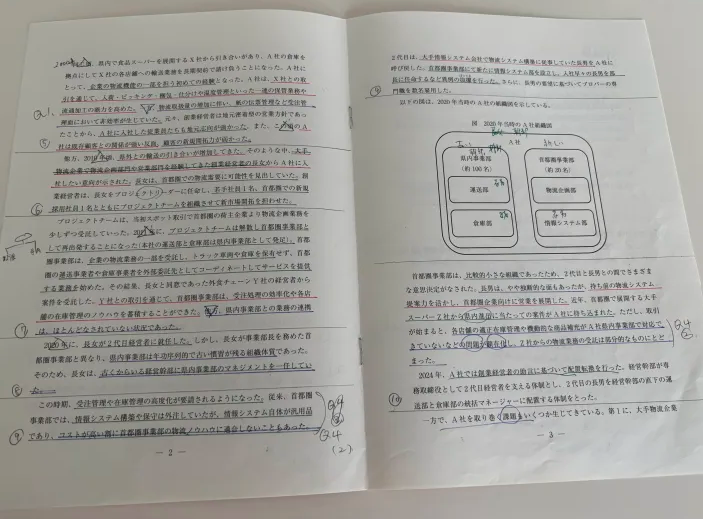 県内で食品スーパーを展開するX社から引き合いがあり、A社の倉庫を
拠点にしてX社の各店舗への輸送業務を長期契約で請け負うことになった。A社に
とって、企業の物流機能の一部を担う初めての経験となった。A社は、X社との取
引を通じて、入荷・ピッキング・梱包・仕分けや温度管理といった一連の保管業務や
流通加工の能力を高めた。
物流取扱量の増加に伴い、紙の伝票管理など受注管
理面において非効率が生じていた。元々、創業経営者は地元密着型の営業方針であっ
たことから、A社に入社した従業員たちも地元志向が強かった。また、
A
社は既存顧客との関係が強い反面、顧客の新規開拓力が弱かった。
他方、
県外との輸送の引き合いが増加してきた。そのような中、大手
物流企業で物流企画部門や営業部門を経験してきた創業経営者の長女からA社に入
社したい意向が示された。長女は、首都圏での物流需要に可能性を見出していた。創
業経営者は、長女をプロジェクトリーダーに任命し、若手社員1名、首都圏での新規
採用社員1名とともにプロジェクトチームを組織させて新市場開拓を担わせた。
プロジェクトチームは、当初スポット取引で首都圏の荷主企業より物流企画業務を
少しずつ受託していった。
プロジェクトチームは解散し首都圏事業部と
して再出発することになった(本社の運送部と倉庫部は県内事業部として発足)。首都
圏事業部は、企業の物流業務の一部を受託し、トラック車両や倉庫を保有せず、首都
圏の運送事業者や倉庫事業者を外部委託先としてコーディネートしてサービスを提供
する業務を始めた。その結果、長女と同窓であった外食チェーンY社の経営者から
案件を受託した。Y社との取引を通じて、首都圏事業部は、受注処理の効率化や各店
舗の在庫管理のノウハウを蓄積することができた。
県内事業部との業務の連携
は、ほとんどなされていない状況であった。
2020年に、長女が2代目経営者に就任した。しかし、長女が事業部長を務めた首
都圏事業部と異なり、県内事業部は年功序列的で古い慣習が残る組織体質であった。
そのため、長女は、古くからいる経営幹部に県内事業部のマネジメントを一任してい
た。
この時期、受注管理や在庫管理の高度化が要請されるようになった。従来、首都圏
事業部では、情報システム構築や保守は外注していたが、情報システム自体が汎用品
であり、コストが高い割に首都圏事業部の物流ノウハウに適合しないこともあった。
— 2 —
2代目は、大手情報システム会社で物流システム構築に従事していた長男をA社に
呼び戻した。首都圏事業部にて新たに情報システム部を設立し、入社早々の長男を部
長に任命するなど異例の抜擢を行った。さらに、長男の要望に基づいてプロパーの専
門職を数名雇用した。
以下の図は、2020年当時のA社の組織図を示している。
図 2020年当時のA社組織図
A社
県内事業部
(約100名)
運送部
倉庫部
首都圏事業部
(約20名)
物流企画部
情報システム部
首都圏事業部は、比較的小さな組織であったため、2代目と長男との間でさまざま
な意思決定がなされた。長男は、やや独断的な面もあったが、持ち前の物流システム
提案力を活かし、首都圏企業向けに営業を展開した。近年、首都圏で展開する大手ス
ーパーZ社から県内進出に当たっての案件がA社に持ち込まれた。ただし、取引
が始まると、各店舗の適正在庫管理や機動的な商品補充がA社県内事業部で対応で
きていないなどの問題が顕在化し、Z社からの物流業務の受託は部分的なものにとど
まった。
2024年、A社では創業経営者の助言に基づいて配置転換を行った。経営幹部が専
務取締役として2代目経営者を支える体制とし、2代目の長男を経営幹部の直下の運
送部と倉庫部の統括マネージャーに配置する体制をとった。
一方で、A社を取り巻く課題もいくつか生じてきている。第1に、大手物流企業
— 3 —